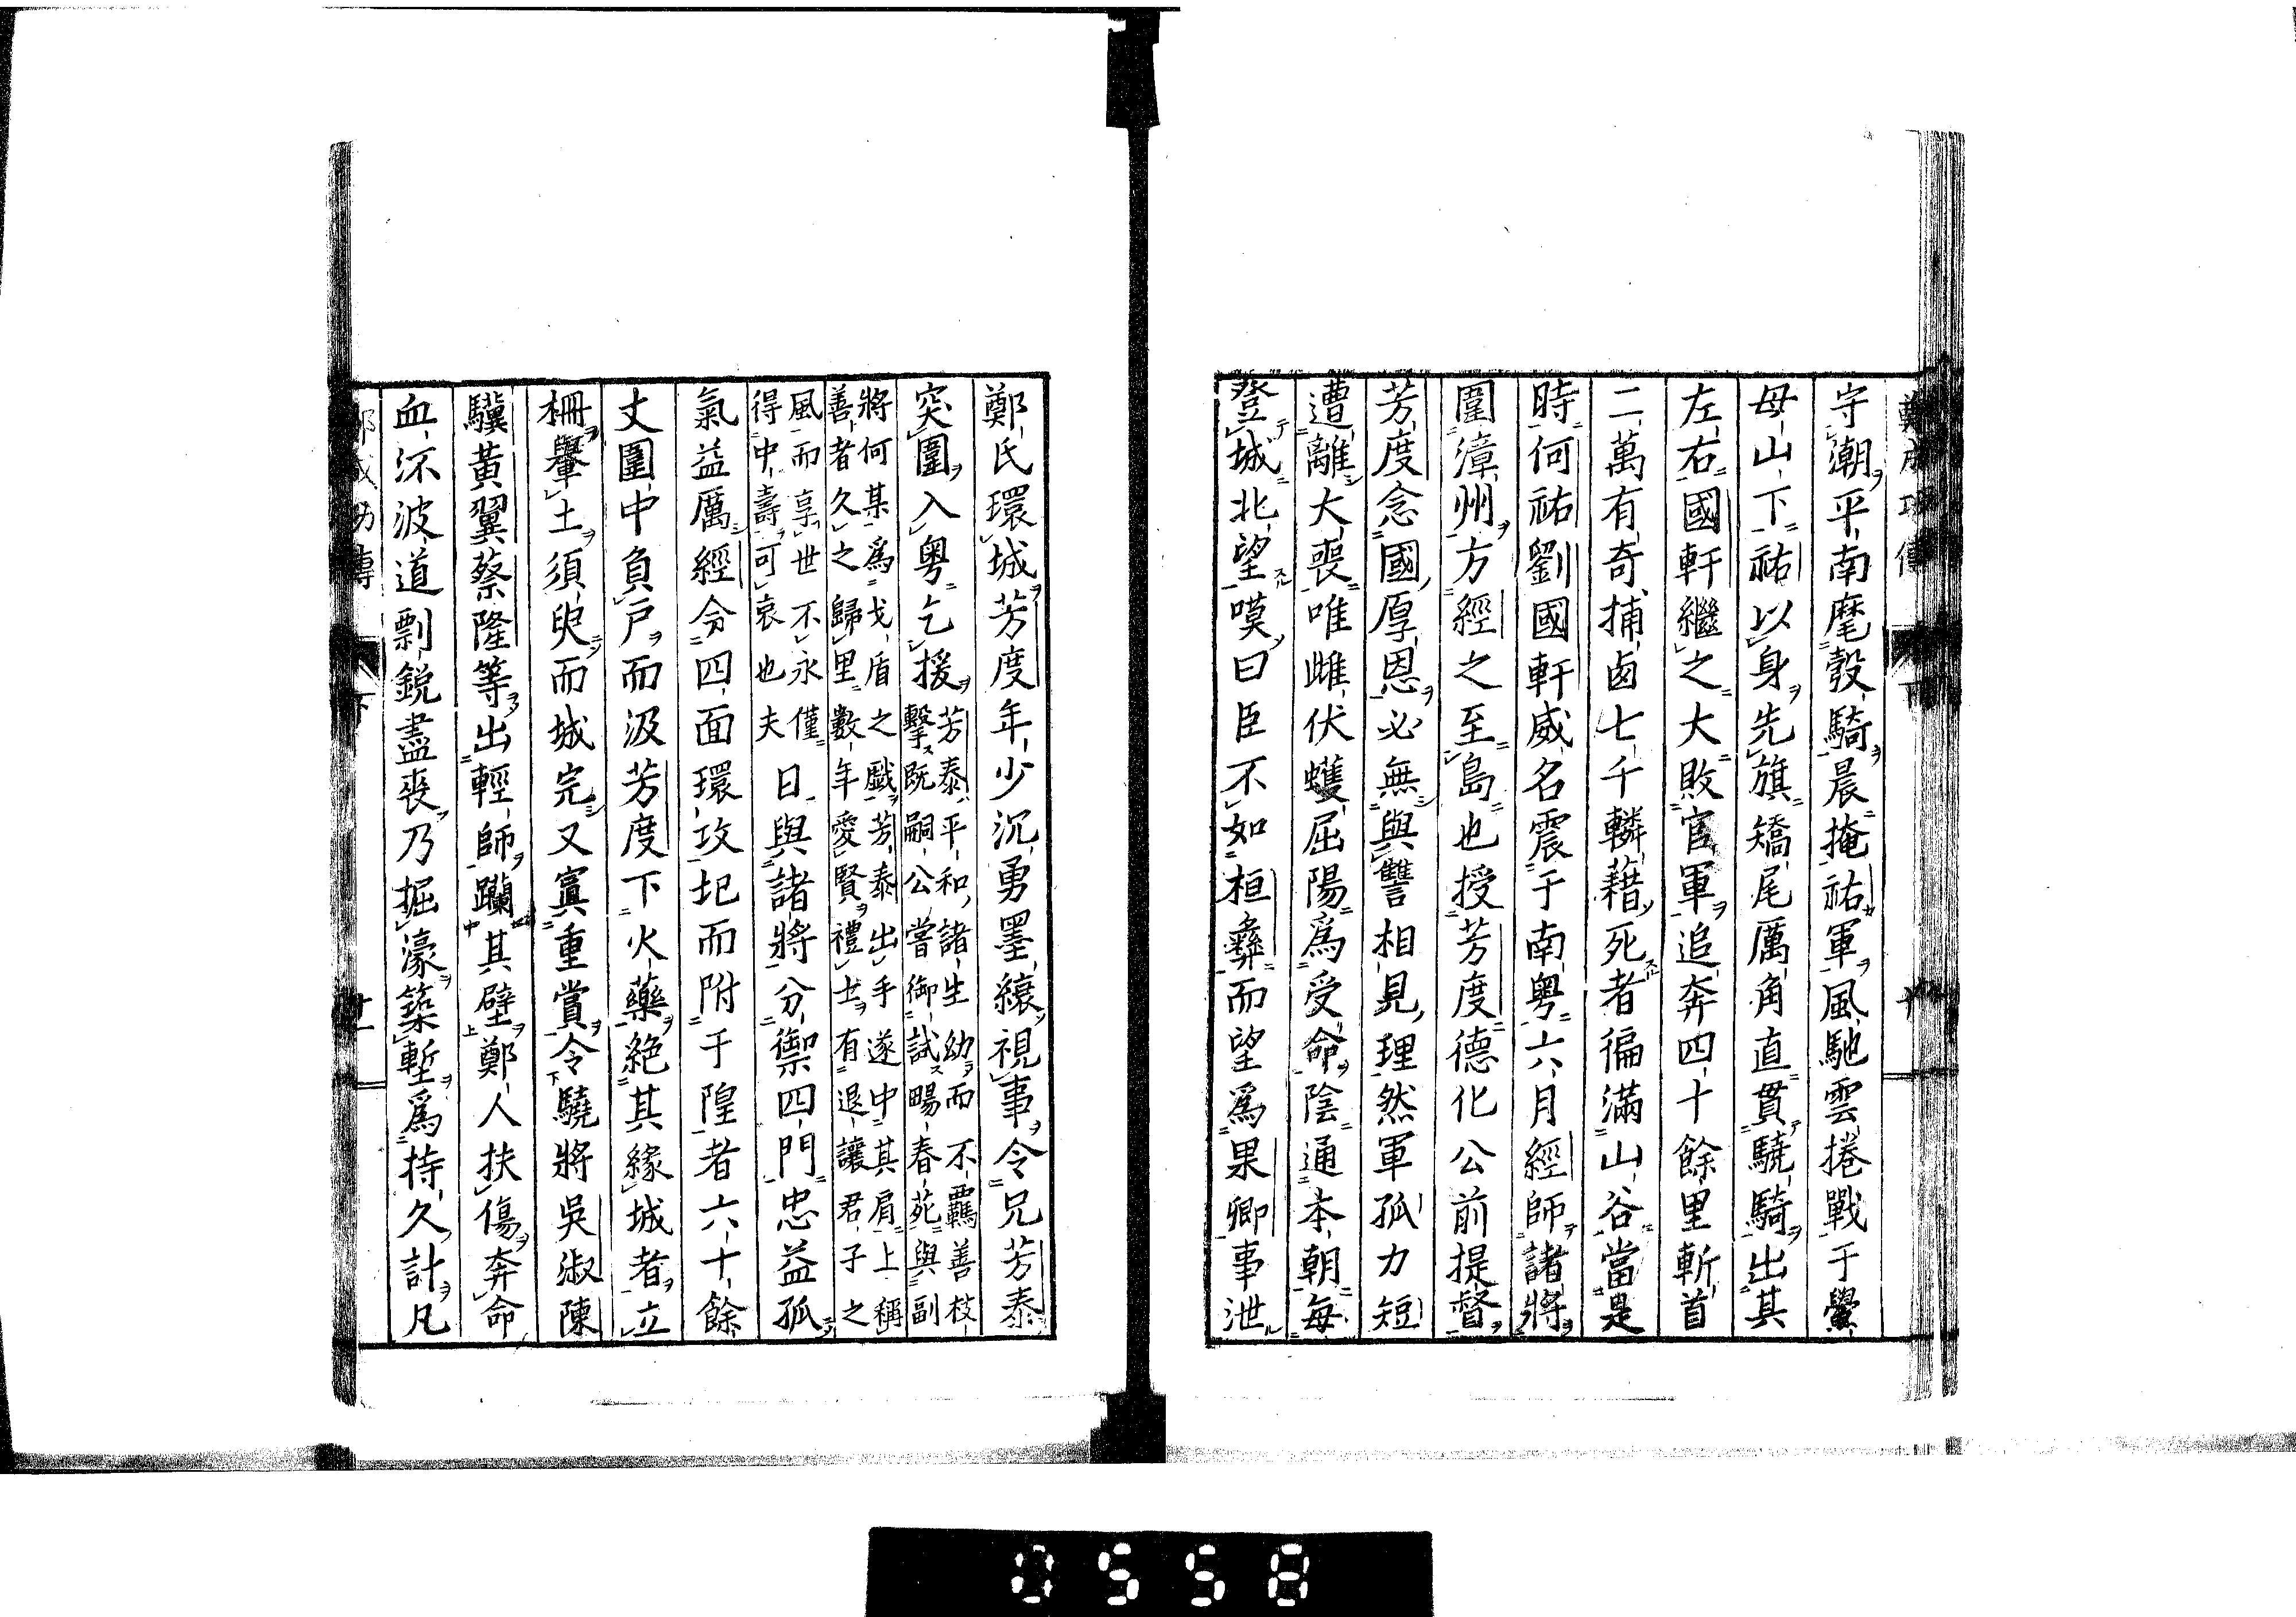 鄭成功傳
下
守潮平南麾彀騎晨掩祐軍風馳雲捲戰于鱟
母山下祐以身先旗矯尾厲角直貫驍騎出其
左右國軒繼之大敗官軍追奔四十餘里斬首
二萬有奇捕鹵七千轔藉死者徧滿山谷當是
時何祐劉國軒威名震于南粤六月經師諸將
圍漳州方經之至島也授芳度德化公前提督
芳度念國厚恩必無與讐相見理然軍孤力短
遭離大喪唯雌伏蠖屈陽爲受命陰通本朝每
登城北望嘆曰臣不如桓彝而望爲果卿事泄
鄭氏環城芳度年少沉勇墨縗視事令兄芳泰
突圍入粤乞援芳泰平和諸生幼而不羈善枝
擊既嗣公嘗御試暢春苑與副
將何某爲戈盾之戲芳泰出手遂中其肩上稱
善者久之歸里數年愛賢禮士有退讓君子之
風而享世不永僅
得中壽可哀也夫日與諸將分禦四門忠益孤
氣益厲經令四面環攻圯而附于隍者六十餘
丈圍中負戸而汲芳度下火藥絶其緣城者立
柵轝土須臾而城完又寘重賞令驍將吳淑陳
驥黃翼蔡隆等出輕師躪其壁鄭人扶傷奔命
血沠波道剽鋭盡喪乃掘濠築塹爲持久計凡
鄭成功傳
下
廿一
0558